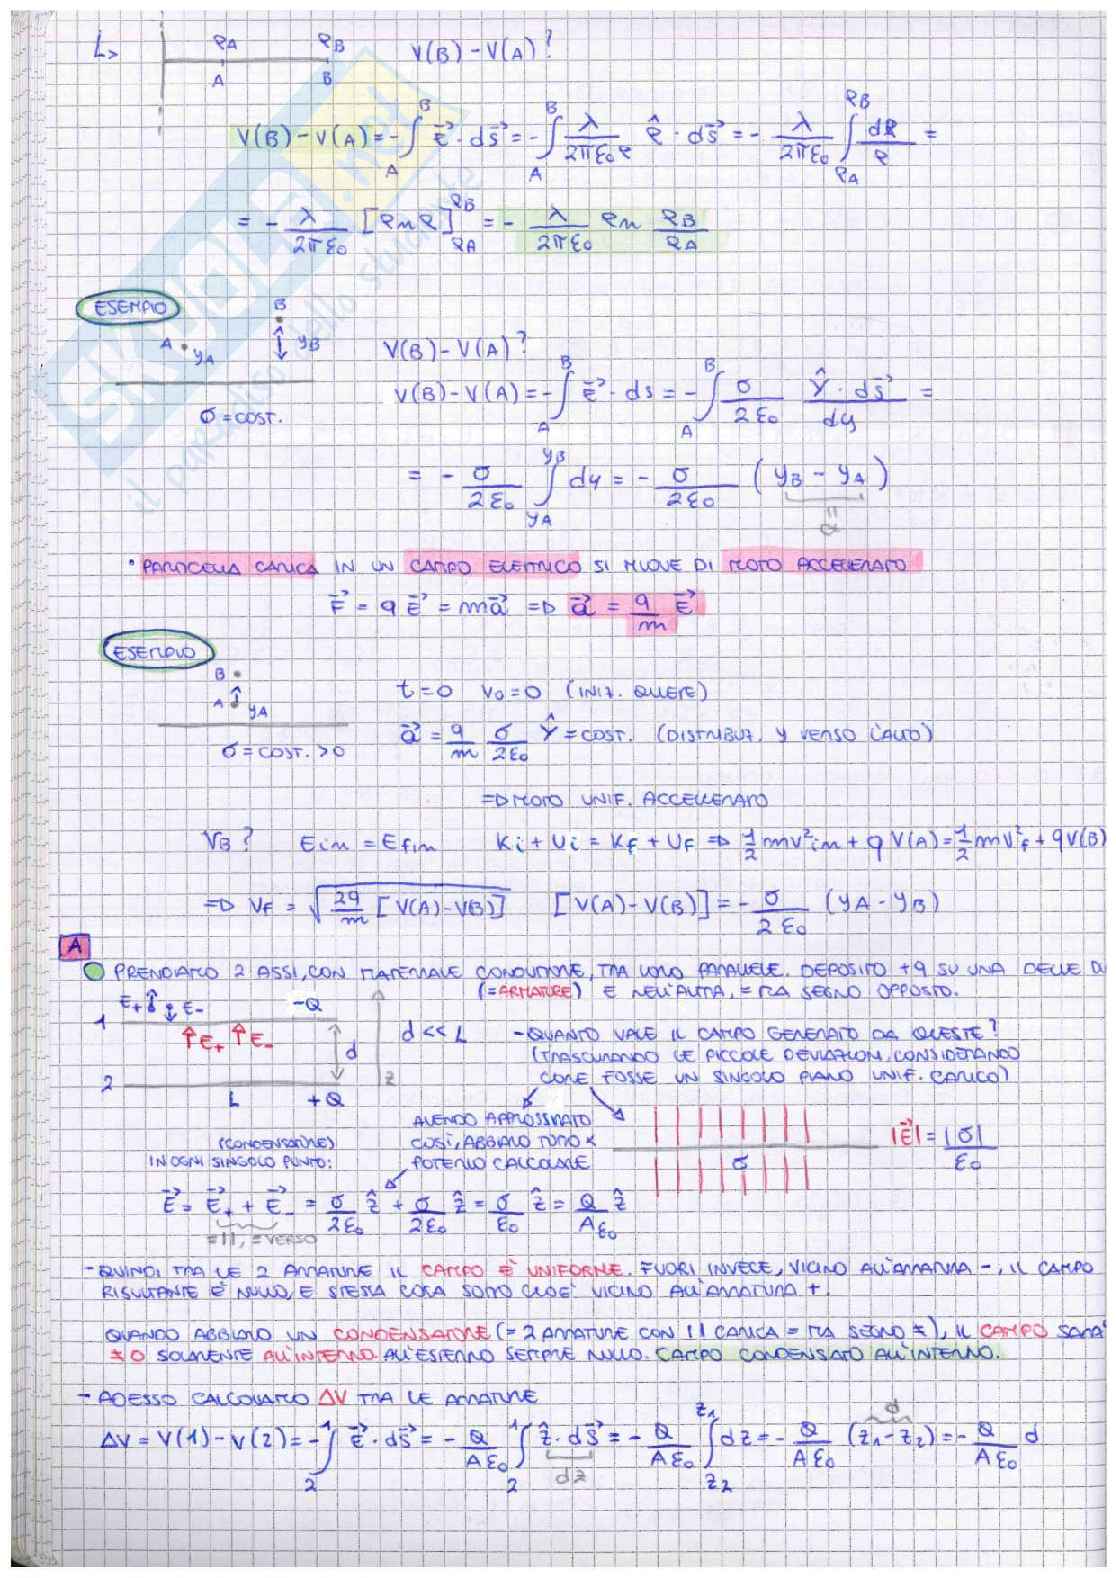 L> ρA ρB V(B) - V(A)?
A B
V(B) - V(A) = - ∫_A^B E⃗ · ds⃗ = - ∫_A^B λ/(2πε₀ρ) ρ̂ · ds⃗ = - λ/(2πε₀) ∫_ρA^ρB dρ/ρ =
= - λ/(2πε₀) [ln ρ]_ρA^ρB = - λ/(2πε₀) ln ρB/ρA
ESEMPIO
B
A yA yB V(B) - V(A)?
σ = COST.
V(B) - V(A) = - ∫_A^B E⃗ · ds = - ∫_A^B σ/(2ε₀) ŷ · ds⃗ =
dy
= - σ/(2ε₀) ∫_yA^yB dy = - σ/(2ε₀) (yB - yA)
d
• PARTICELLA CARICA IN UN CAMPO ELETTRICO SI MUOVE DI MOTO ACCELERATO
F⃗ = q E⃗ = m a⃗ => a⃗ = q/m E⃗
ESEMPIO
B
A yA
t = 0 v₀ = 0 (INIZ. QUIETE)
σ = COST. > 0
a⃗ = q/m σ/(2ε₀) ŷ = COST. (DISTRIBUZ. y VERSO L'ALTO)
=> MOTO UNIF. ACCELLERATO
VB? Ein = Efin Ki + Ui = Kf + Uf => 1/2 mv²in + q V(A) = 1/2 mv²f + q V(B)
=> Vf = √(2q/m [V(A) - V(B)]) [V(A) - V(B)] = - σ/(2ε₀) (yA - yB)
A
PRENDIAMO 2 ASSI, CON MATERIALE CONDUTTORE, TRA LORO PARALLELE. DEPOSITO +q SU UNA DELLE D
(= ARMATURE) E NELL'ALTRA, = MA SEGNO OPPOSTO.
E+ E- -Q
1
E+ E- d
z
2
L +Q
d << L
- QUANTO VALE IL CAMPO GENERATO DA QUESTE?
(TRASCURANDO LE PICCOLE DEVIAZIONI, CONSIDERANDO
COME FOSSE UN SINGOLO PIANO UNIF. CARICO)
AVENDO APPROSSIMATO
COSÌ, ABBIAMO TUTTO X
POTERLO CALCOLARE
σ
|E⃗| = |σ|/ε₀
(CONDENSATORE)
IN OGNI SINGOLO PUNTO:
E⃗ = E⃗+ + E⃗- = σ/(2ε₀) ẑ + σ/(2ε₀) ẑ = σ/ε₀ ẑ = Q/(Aε₀) ẑ
= | |, = VERSO
- QUINDI TRA LE 2 ARMATURE IL CAMPO È UNIFORME. FUORI INVECE, VICINO ALL'ARMATURA -, IL CAMPO
RISULTANTE È NULLO, E STESSA COSA SOTTO CIOÈ VICINO ALL'ARMATURA +.
QUANDO ABBIAMO UN CONDENSATORE (= 2 ARMATURE CON | | CARICA = MA SEGNO ≠), IL CAMPO SARA'
≠ 0 SOLAMENTE ALL'INTERNO. ALL'ESTERNO SEMPRE NULLO. CAMPO CONDENSATO ALL'INTERNO.
- ADESSO CALCOLIAMO ΔV TRA LE ARMATURE
ΔV = V(1) - V(2) = - ∫_2^1 E⃗ · ds⃗ = - Q/(Aε₀) ∫_2^1 ẑ · ds⃗ = - Q/(Aε₀) ∫_z2^z1 dz = - Q/(Aε₀) (z1 - z2) = - Q/(Aε₀) d
dz d
SKUOLA.net
il paradiso dello studente